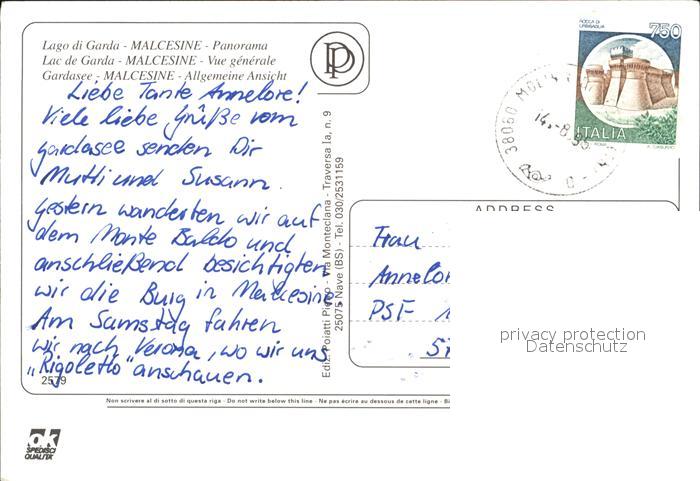 Lago di Garda - MALCESINE - Panorama
Lac de Garda - MALCESINE - Vue générale
Gardasee - MALCESINE - Allgemeine Ansicht
Liebe Tante Annelore!
Viele liebe Grüße vom
Gardasee senden Dir
Mutti und Susann.
Gestern wanderten wir auf
dem Monte Baldo und
anschließend besichtigten
wir die Burg in Malcesine.
Am Samstag fahren
wir nach Verona, wo wir uns
„Rigoletto" anschauen.
2579
PP
Ediz. Poiatti Pietro - Via Monteclana - Traversa Ia, n. 9
25075 Nave (BS) - Tel. 030/2531159
ROCCA DI
URBISAGLIA
750
ITALIA
38060
14.-8.95
ADDRESS
Frau
Annelor
PSF
privacy protection
Datenschutz
Non scrivere al di sotto di questa riga - Do not write below this line - Ne pas écrire au dessous de cette ligne - Bi
ok
SPEDISCI
QUALITÀ